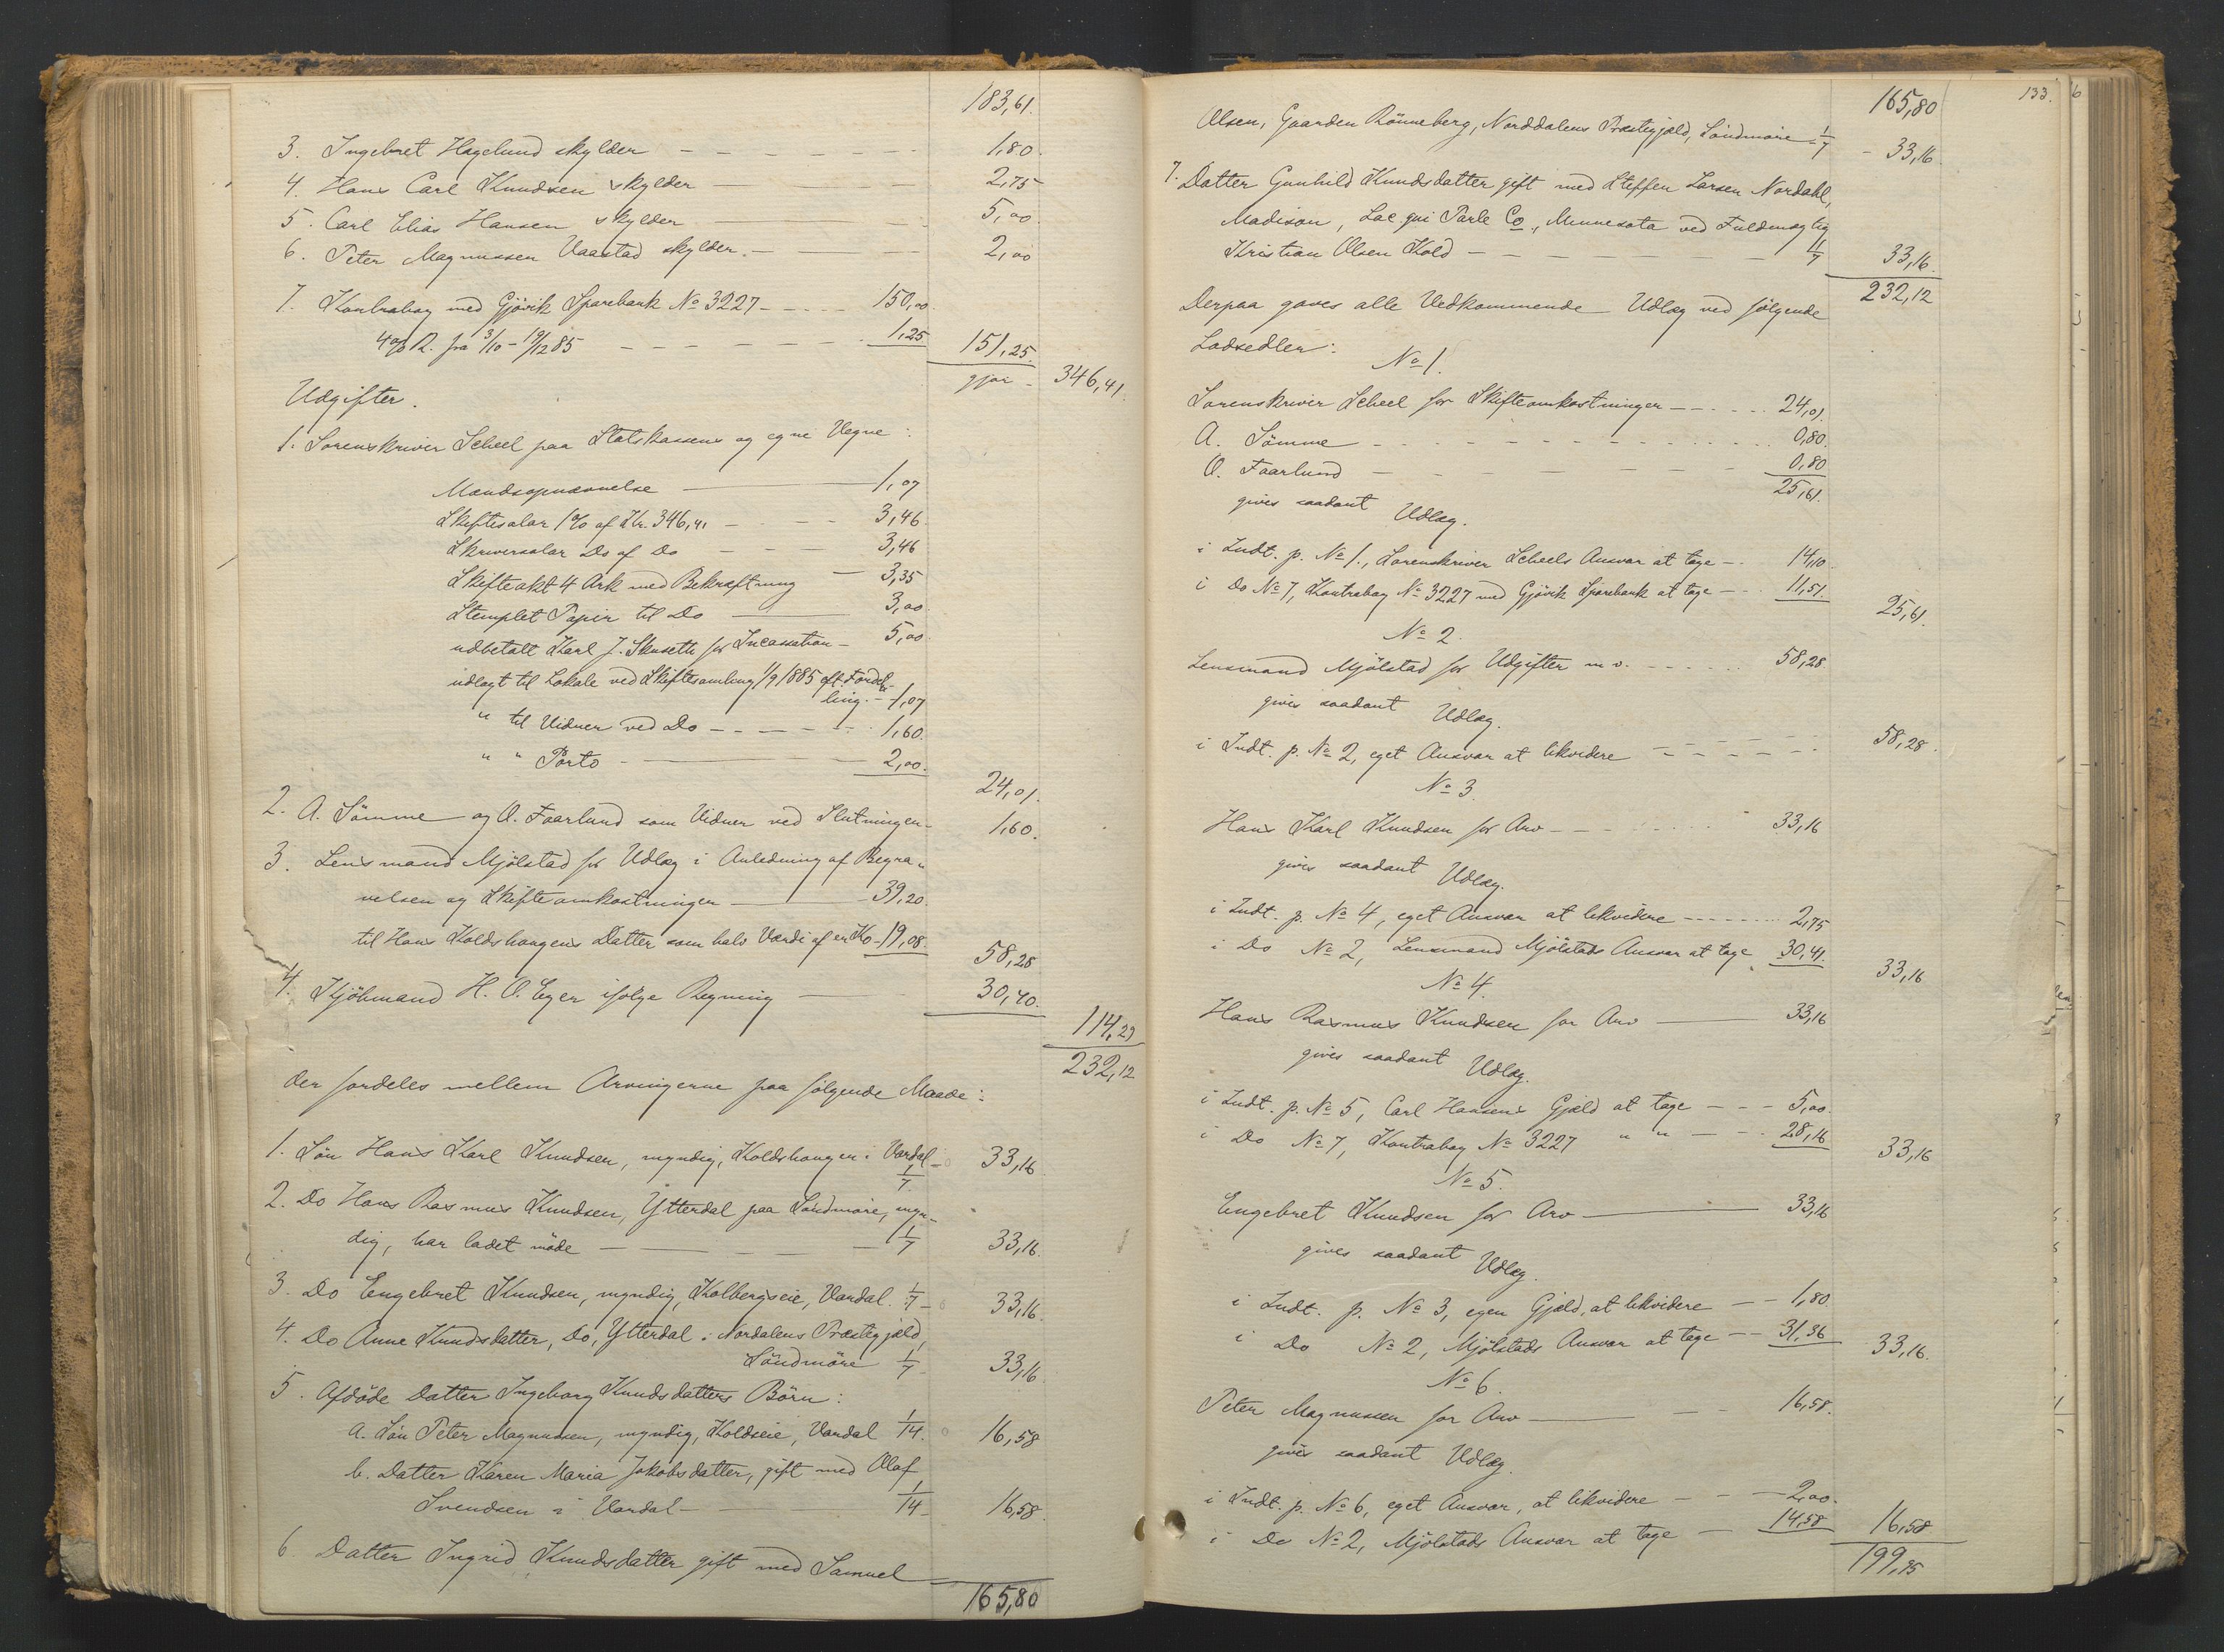 183,61.
3. Ingebret Hagelund skylder 1,80.
4. Hans Carl Knudsen skylder 2,75
5. Carl Elias Hansen skylder 5,00.
6. Peter Magnussen Vaastad skylder 2,00
7. Kontrabog med Gjövik Sparebank No 3227 150,00
4% R. fra 3/10 - 19/12 85 1,25 151,25.
gjör 346,41.
Udgifter.
1. Sorenskriver Scheel paa Statskassens og egne Vegne:
Mandsopnævnelse 1,07
Skiftesalar 1% af Kr. 346,41 3,46.
Skriversalar Do af Do 3,46
Skifteakt 4 Ark med Bekræftning 3,35
Stemplet Papir til Do 3,00.
udbetalt Karl J. Skuseth for Incassation 5,00.
udlagt til Lokale ved Skiftesamling 1/9 1885 eft. Fordel-
ling. 1,07
" til Vidner ved Do 1,60.
" " Porto 2,00.
24,01.
2. A. Sömme og O. Faarlund som Vidner ved Slutningen 1,60.
3. Lensmand Mjölstad for Udlæg i Anledning af Begra-
velsen og Skifteomkostninger 39,20.
til Hans Koldshaugens Datter som halv Værdi af en Ko 19,08.
58,28
4. Kjöbmand H. O. Eger ifölge Regning 30,40.
114,29
232,12
der fordeles mellem Arvingerne paa fölgende Maade:
1. Sön Hans Karl Knudsen, myndig, Koldshaugen i Vardal
1/7 33,16
2. Do Hans Rasmus Knudsen, Ytterdal paa Söndmöre, myn-
dig, har ladet möde 1/7 33,16.
3. Do Engebret Knudsen, myndig, Kolbergseie, Vardal. 1/7 33,16.
4. Do Anne Knudsdatter, Do, Ytterdal i Nordalens Præstegjæld,
Söndmöre 1/7 33,16
5. Afdöde Datter Ingeborg Knudsdatters Börn:
a. Sön Peter Magnussen, myndig, Koldseie, Vardal 1/14. 16,58
b. Datter Karen Maria Jakobsdatter, gift med Olaf
Svendsen i Vardal 1/14 16,58.
6 Datter Ingrid Knudsdatter gift med Samuel
165,80
133.
6
165,80
Olsen, Gaarden Rönneberg, Norddalens Præstegjæld, Söndmöre 1/7 33,16.
7. Datter Gunhild Knudsdatter gift med Steffen Larsen Nordahl,
Madison, Lac qui Parle Co., Minnesota ved Fuldmægtig
Kristian Olsen Kold 1/7 33,16.
232,12
Derpaa gaves alle Vedkommende Udlæg ved fölgende
Lodsedler:
No 1.
Sorenskriver Scheel for Skifteomkostninger 24,01.
A. Sömme 0,80.
O. Faarlund 0,80
25,61.
gives saadant Udlæg.
i Indt. p. No 1., Sorenskriver Scheels Ansvar at tage 14,10
i Do No 7, Kontrabog No 3227 med Gjövik Sparebank at tage 11,51. 25,61.
No 2.
Lensmand Mjölstad for Udgifter m. v. 58,28
gives saadant Udlæg.
i Indt. p. No 2, eget Ansvar at likvidere 58,28.
No 3
Hans Karl Knudsen for Arv 33,16
gives saadant Udlæg.
i Indt. p. No 4, eget Ansvar at likvidere 2,75
i Do No 2, Lensmand Mjölstads Ansvar at tage 30,41. 33,16
No 4.
Hans Rasmus Knudsen for Arv 33,16
gives saadant Udlæg.
i Indt. p. No 5, Carl Hansens Gjæld at tage 5,00.
i Do No 7, Kontrabog No 3227 " " 28,16 33,16
No 5.
Engebret Knudsen for Arv 33,16
gives saadant Udlæg.
i Indt. p. No 3, egen Gjæld, at likvidere 1,80
i Do No 2, Mjölstads Ansvar at tage 31,36 33,16.
No 6.
Peter Magnussen for Arv 16,58.
gives saadant Udlæg.
i Indt. p. No 6, eget Ansvar, at likvidere 2,00.
i Do No 2, Mjölstads Ansvar at tage 14,58 16,58
199,95